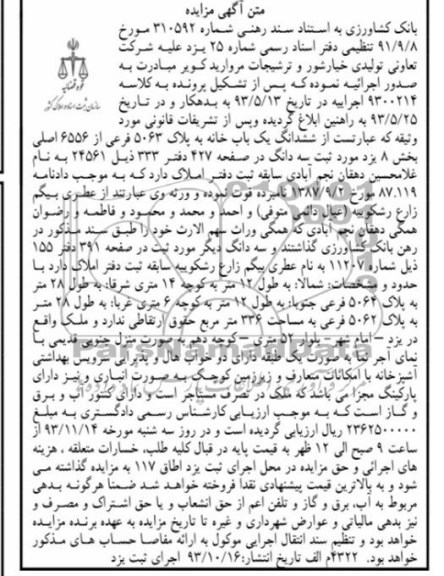 متن آگهی مزایده
بانک کشاورزی به استناد سند رهنی شماره ۳۱۰۵۹۲ مورخ
۹۱/۹/۸ تنظیمی دفتر اسناد رسمی شماره ۲۵ یزد علیه شرکت
تعاونی تولیدی خیارشور و ترشیجات مروارید کویر مبادرت به
صدور اجرائیه نموده که پس از تشکیل پرونده به کلاسه
۹۳۰۰۲۱۴ اجراییه در تاریخ ۹۳/۵/۱۳ به بدهکار و در تاریخ
۹۳/۵/۲۵ به راهنین ابلاغ گردیده وپس از تشریفات قانونی مورد
وثیقه که عبارتست از ششدانگ یک باب خانه به پلاک ۵۰۶۳ فرعی از ۶۵۵۶ اصلی
بخش ۸ یزد مورد ثبت سه دانگ در صفحه ۴۲۷ دفتر ۳۳۳ ذیل ۲۴۵۶۱ به نام
غلامحسین دهقان نجم آبادی سابقه ثبت دفتر املاک دارد که به موجب دادنامه
۸۷.۱۱۹ مورخ ۱۳۸۷/۹/۲ نامبرده فوت نموده و ورثه وی عبارتند از عطری بیگم
زارع رشکوییه (عیال دائمی متوفی) و احمد و محمد و محمود و فاطمه و رضوان
همگی دهقان نجم آبادی که همگی وراث سهم الارث خود را طبق سند مذکور در
رهن بانک کشاورزی گذاشتند و سه دانگ دیگر مورد ثبت در صفحه ۳۹۱ دفتر ۱۵۵
ذیل شماره ۱۱۲۰۷ به نام عطری بیگم زارع رشکوییه سابقه ثبت دفتر املاک دارد با
حدود و مشخصات: شمالا: به طول ۱۲ متر به کوچه ۱۴ متری شرقا: به طول ۲۸ متر
به پلاک ۵۰۶۴ فرعی جنوبا: به طول ۱۲ متر به کوچه ۶ متری غربا: به طول ۲۸ متر
به پلاک ۵۰۶۲ فرعی به مساحت ۳۳۶ متر مربع حقوق ارتفاقی ندارد و ملک واقع
در یزد – امام شهر – بلوار ۵۲ متری – کوچه دهم به صورت منزل جنوبی قدیمی با
نمای آجرنما به صورت یک طبقه دارای دو خواب هال و پذیرایی سرویس بهداشتی
آشپزخانه با امکانات متعارف و زیرزمین کوچک به صورت انباری و نیز دارای
پارکینگ مجزا می باشد که ملک در تصرف مستاجر است و دارای کنتور آب و برق
و گاز است که به موجب ارزیابی کارشناس رسمی دادگستری به مبلغ
۲۳۶۲۵۰۰۰۰۰ ریال ارزیابی گردیده است و در روز سه شنبه مورخه ۹۳/۱۱/۱۴ از
ساعت ۹ صبح الی ۱۲ ظهر به قیمت پایه در قبال کلیه طلب، خسارات متعلقه ، هزینه
های اجرائی و حق مزایده در محل اجرای ثبت یزد اطاق ۱۱۷ به مزایده گذاشته می
شود و به بالاترین قیمت پیشنهادی نقدا فروخته خواهد شد ضمنا هرگونه بدهی
مربوط به آب، برق و گاز و تلفن اعم از حق انشعاب و یا حق اشتراک و مصرف و
نیز بدهی مالیاتی و عوارض شهرداری و غیره تا تاریخ مزایده به عهده برنده مزایده
خواهد بود و تنظیم سند انتقال اجرایی موکول به ارائه مفاصا حساب های مذکور
خواهد بود. ۴۳۲۲م الف تاریخ انتشار:۹۳/۱۰/۱۶ اجرای ثبت یزد